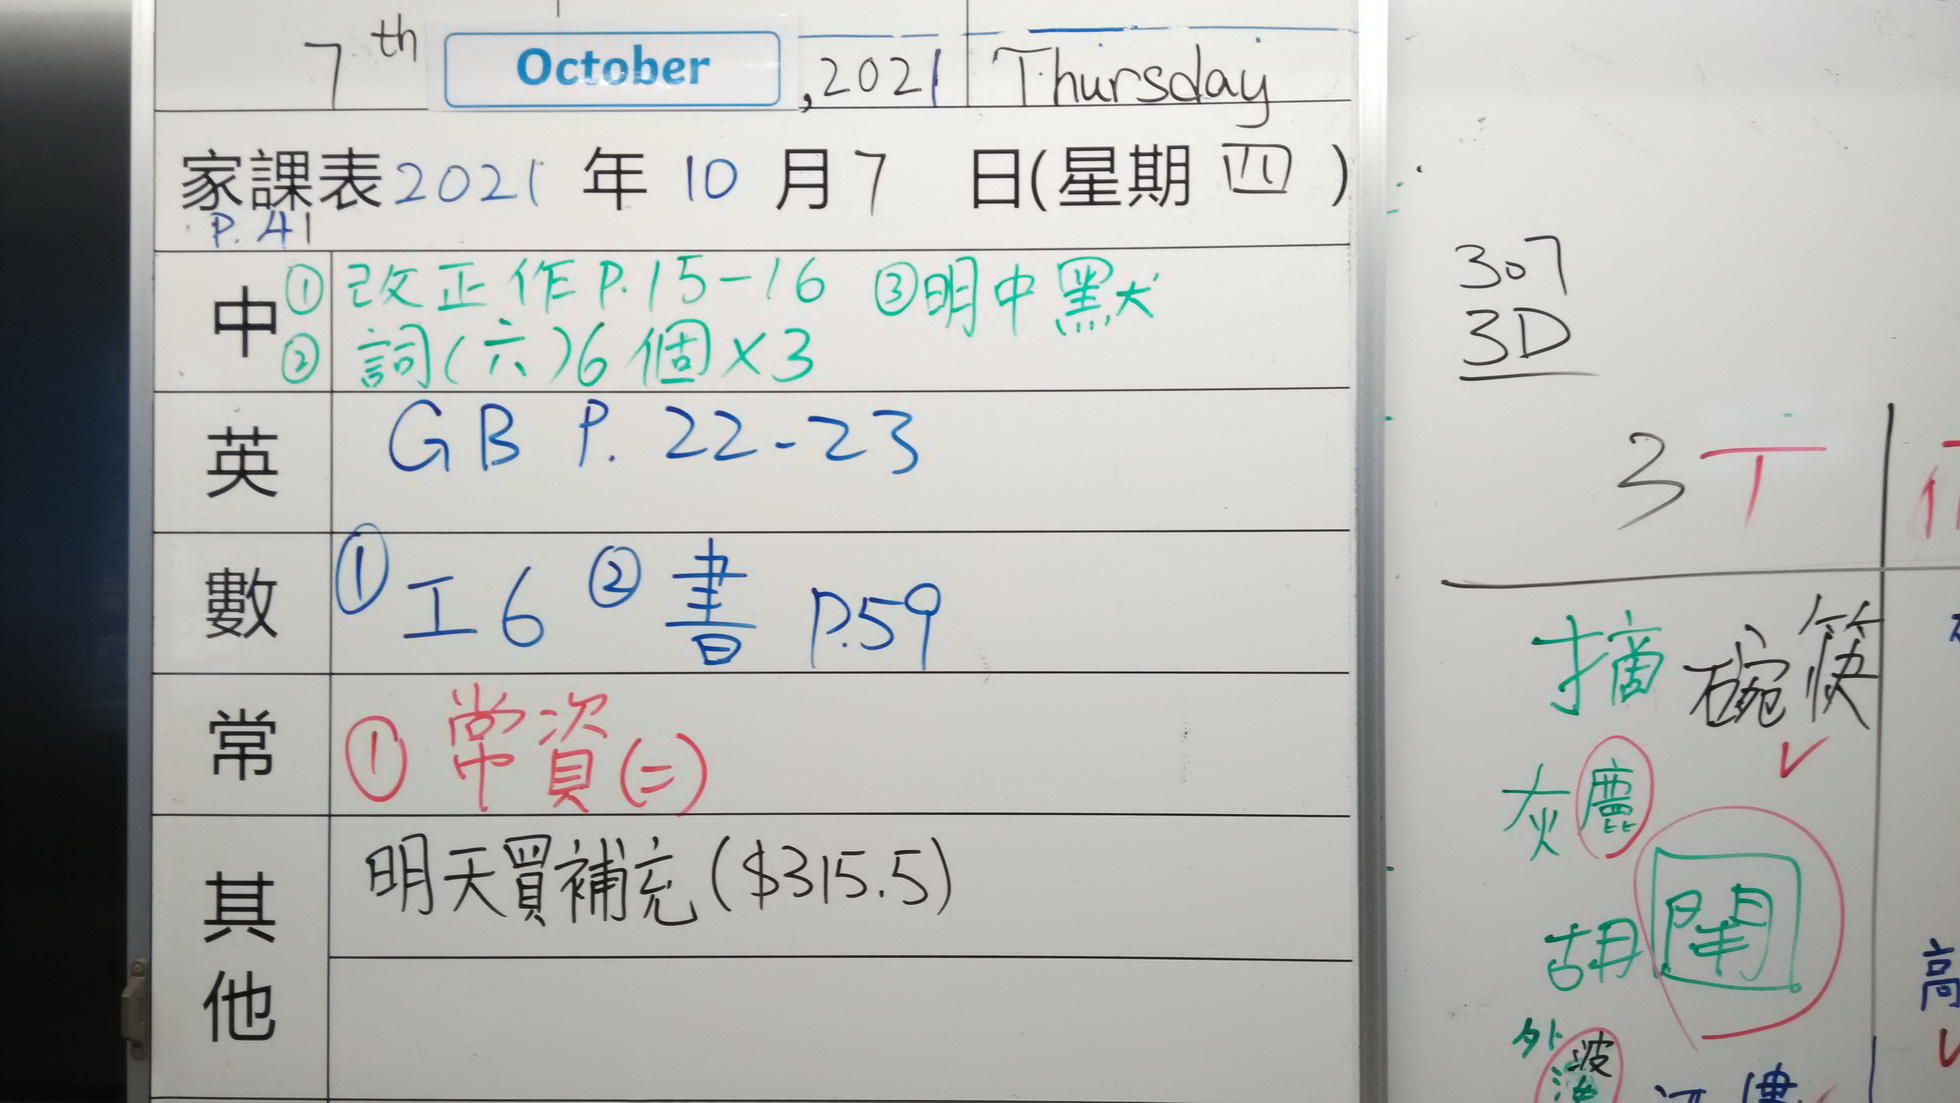 7th October, 2021 Thursday
家課表2021年10月7日(星期四)
P.41
中 ① 改正作P.15-16 ③明中默
② 詞(六)6個×3
英 GB P. 22-23
數 ① 工6 ② 書 P.59
常 ① 常資(二)
其他 明天買補充($315.5)
307
3D
3丁
摘 碗筷 ✓
灰塵
胡鬧
外
波
高